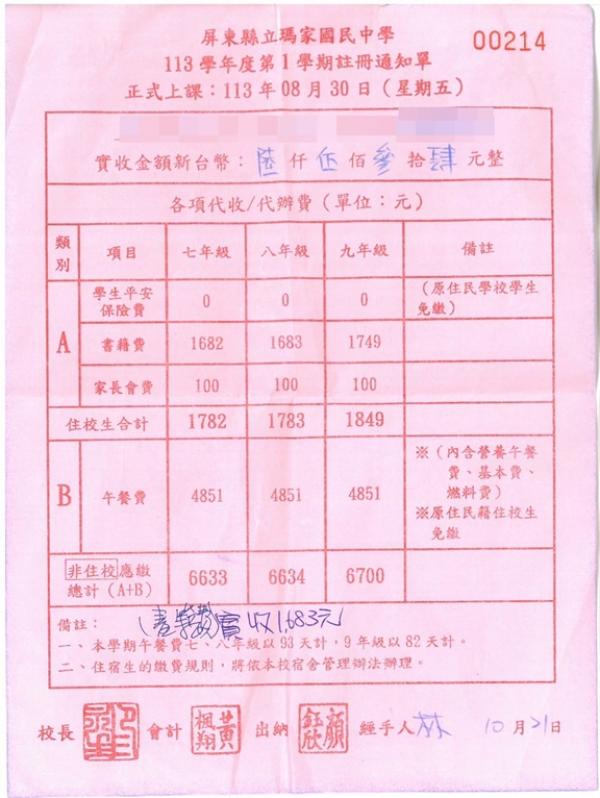 屏東縣立瑪家國民中學
00214
113學年度第1學期註冊通知單
正式上課：113年08月30日（星期五）
實收金額新台幣：陸仟伍佰參拾肆元整
各項代收/代辦費（單位：元）
類別 項目 七年級 八年級 九年級 備註
A 學生平安保險費 0 0 0 （原住民學校學生免繳）
書籍費 1682 1683 1749
家長會費 100 100 100
住校生合計 1782 1783 1849
B 午餐費 4851 4851 4851 ※（內含營養午餐費、基本費、燃料費）
※原住民籍住校生免繳
非住校應繳總計（A+B） 6633 6634 6700
備註：
實收1,683元
一、本學期午餐費七、八年級以93天計，9年級以82天計。
二、住宿生的繳費規則，將依本校宿舍管理辦法辦理。
校長 會計 黃楓翔 出納 顏鈺欣 經手人 林 10月21日